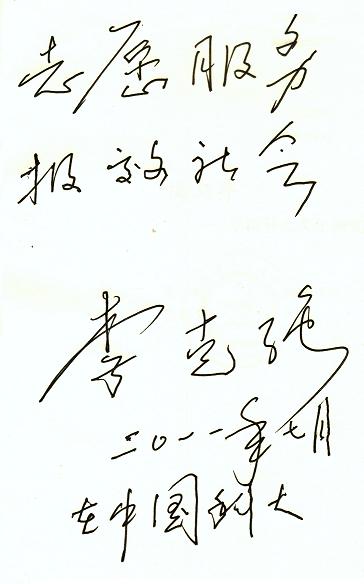 志愿服务
报效社会
李克强
二〇一一年七月
在中国科大